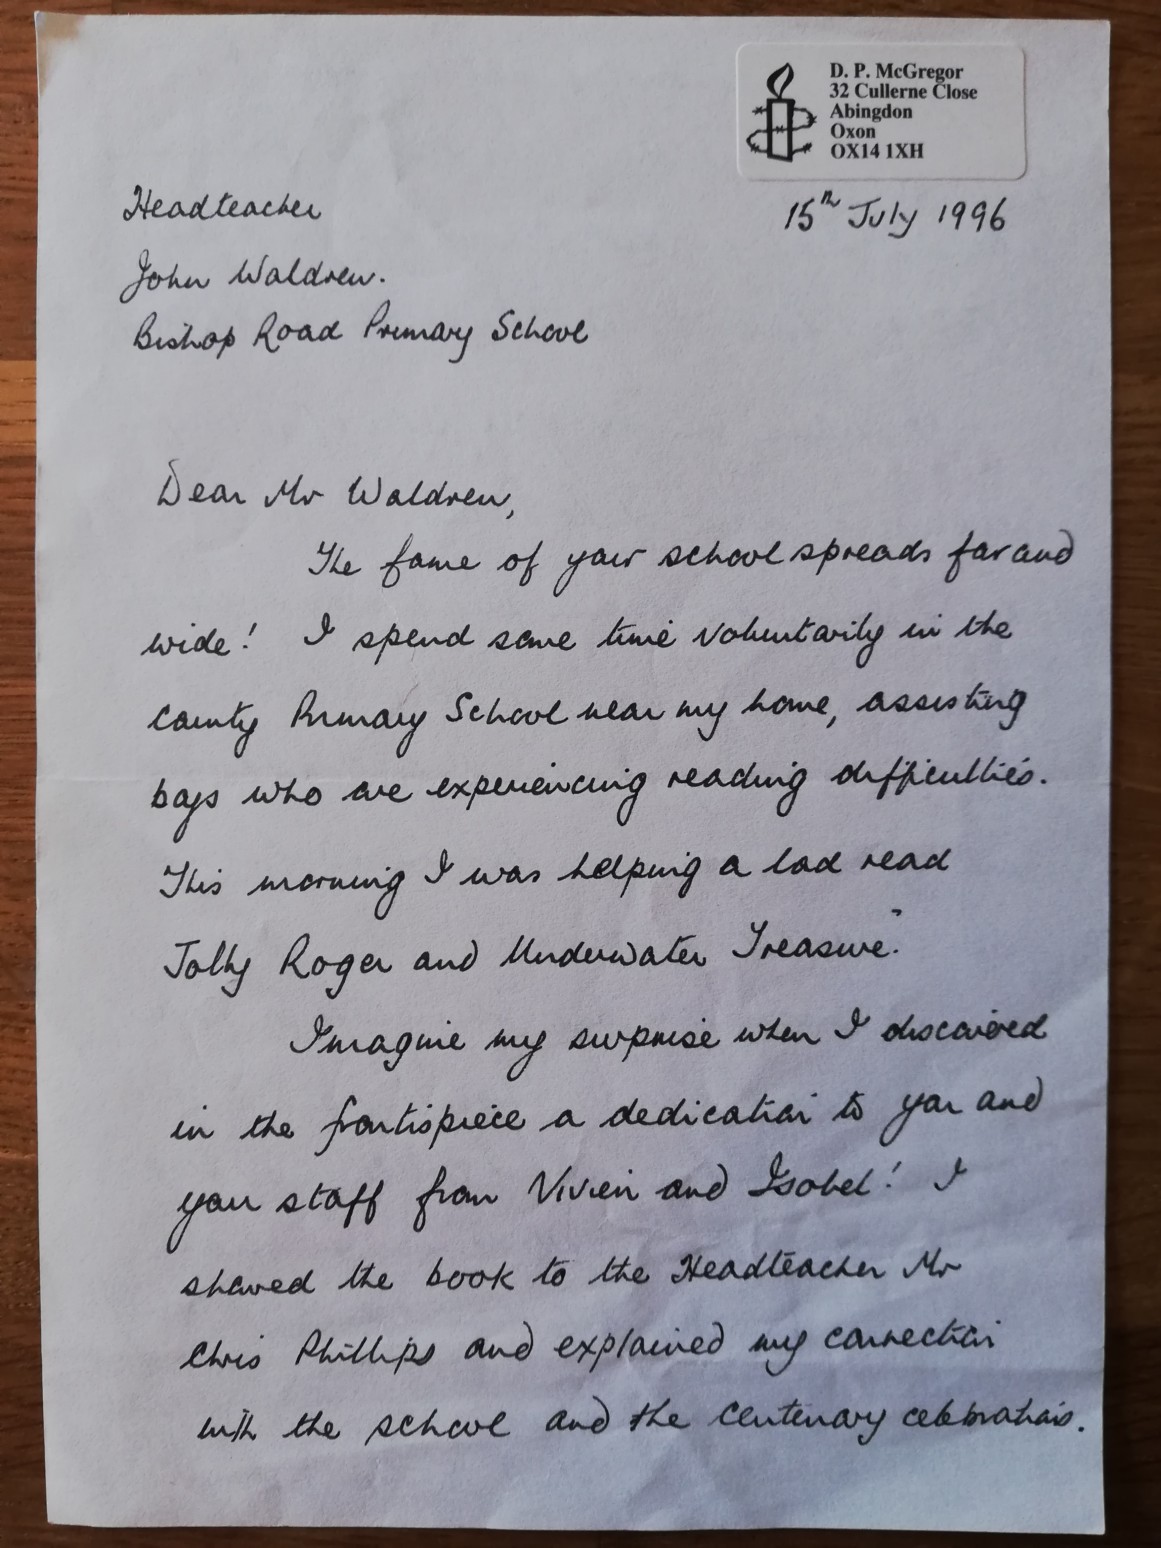 D. P. McGregor
32 Cullerne Close
Abingdon
Oxon
OX14 1XH
15th July 1996
Headteacher
John Waldren.
Bishop Road Primary School
Dear Mr Waldren,
The fame of your school spreads far and
wide! I spend some time voluntarily in the
County Primary School near my home, assisting
boys who are experiencing reading difficulties.
This morning I was helping a lad read
Jolly Roger and Underwater Treasure."
Imagine my surprise when I discovered
in the frontispiece a dedication to you and
your staff from Vivien and Isobel! I
showed the book to the Headteacher Mr
Chris Phillips and explained my connection
with the school and the centenary celebrations.